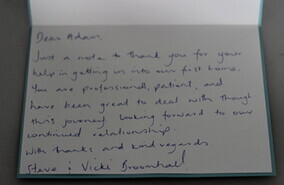 Dear Adam,
Just a note to thank you for your
help in getting us into our first home.
You are professional, patient, and
have been great to deal with though
this journey. Looking forward to our
continued relationship.
With thanks and kind regards
Steve & Vicki Broomhall